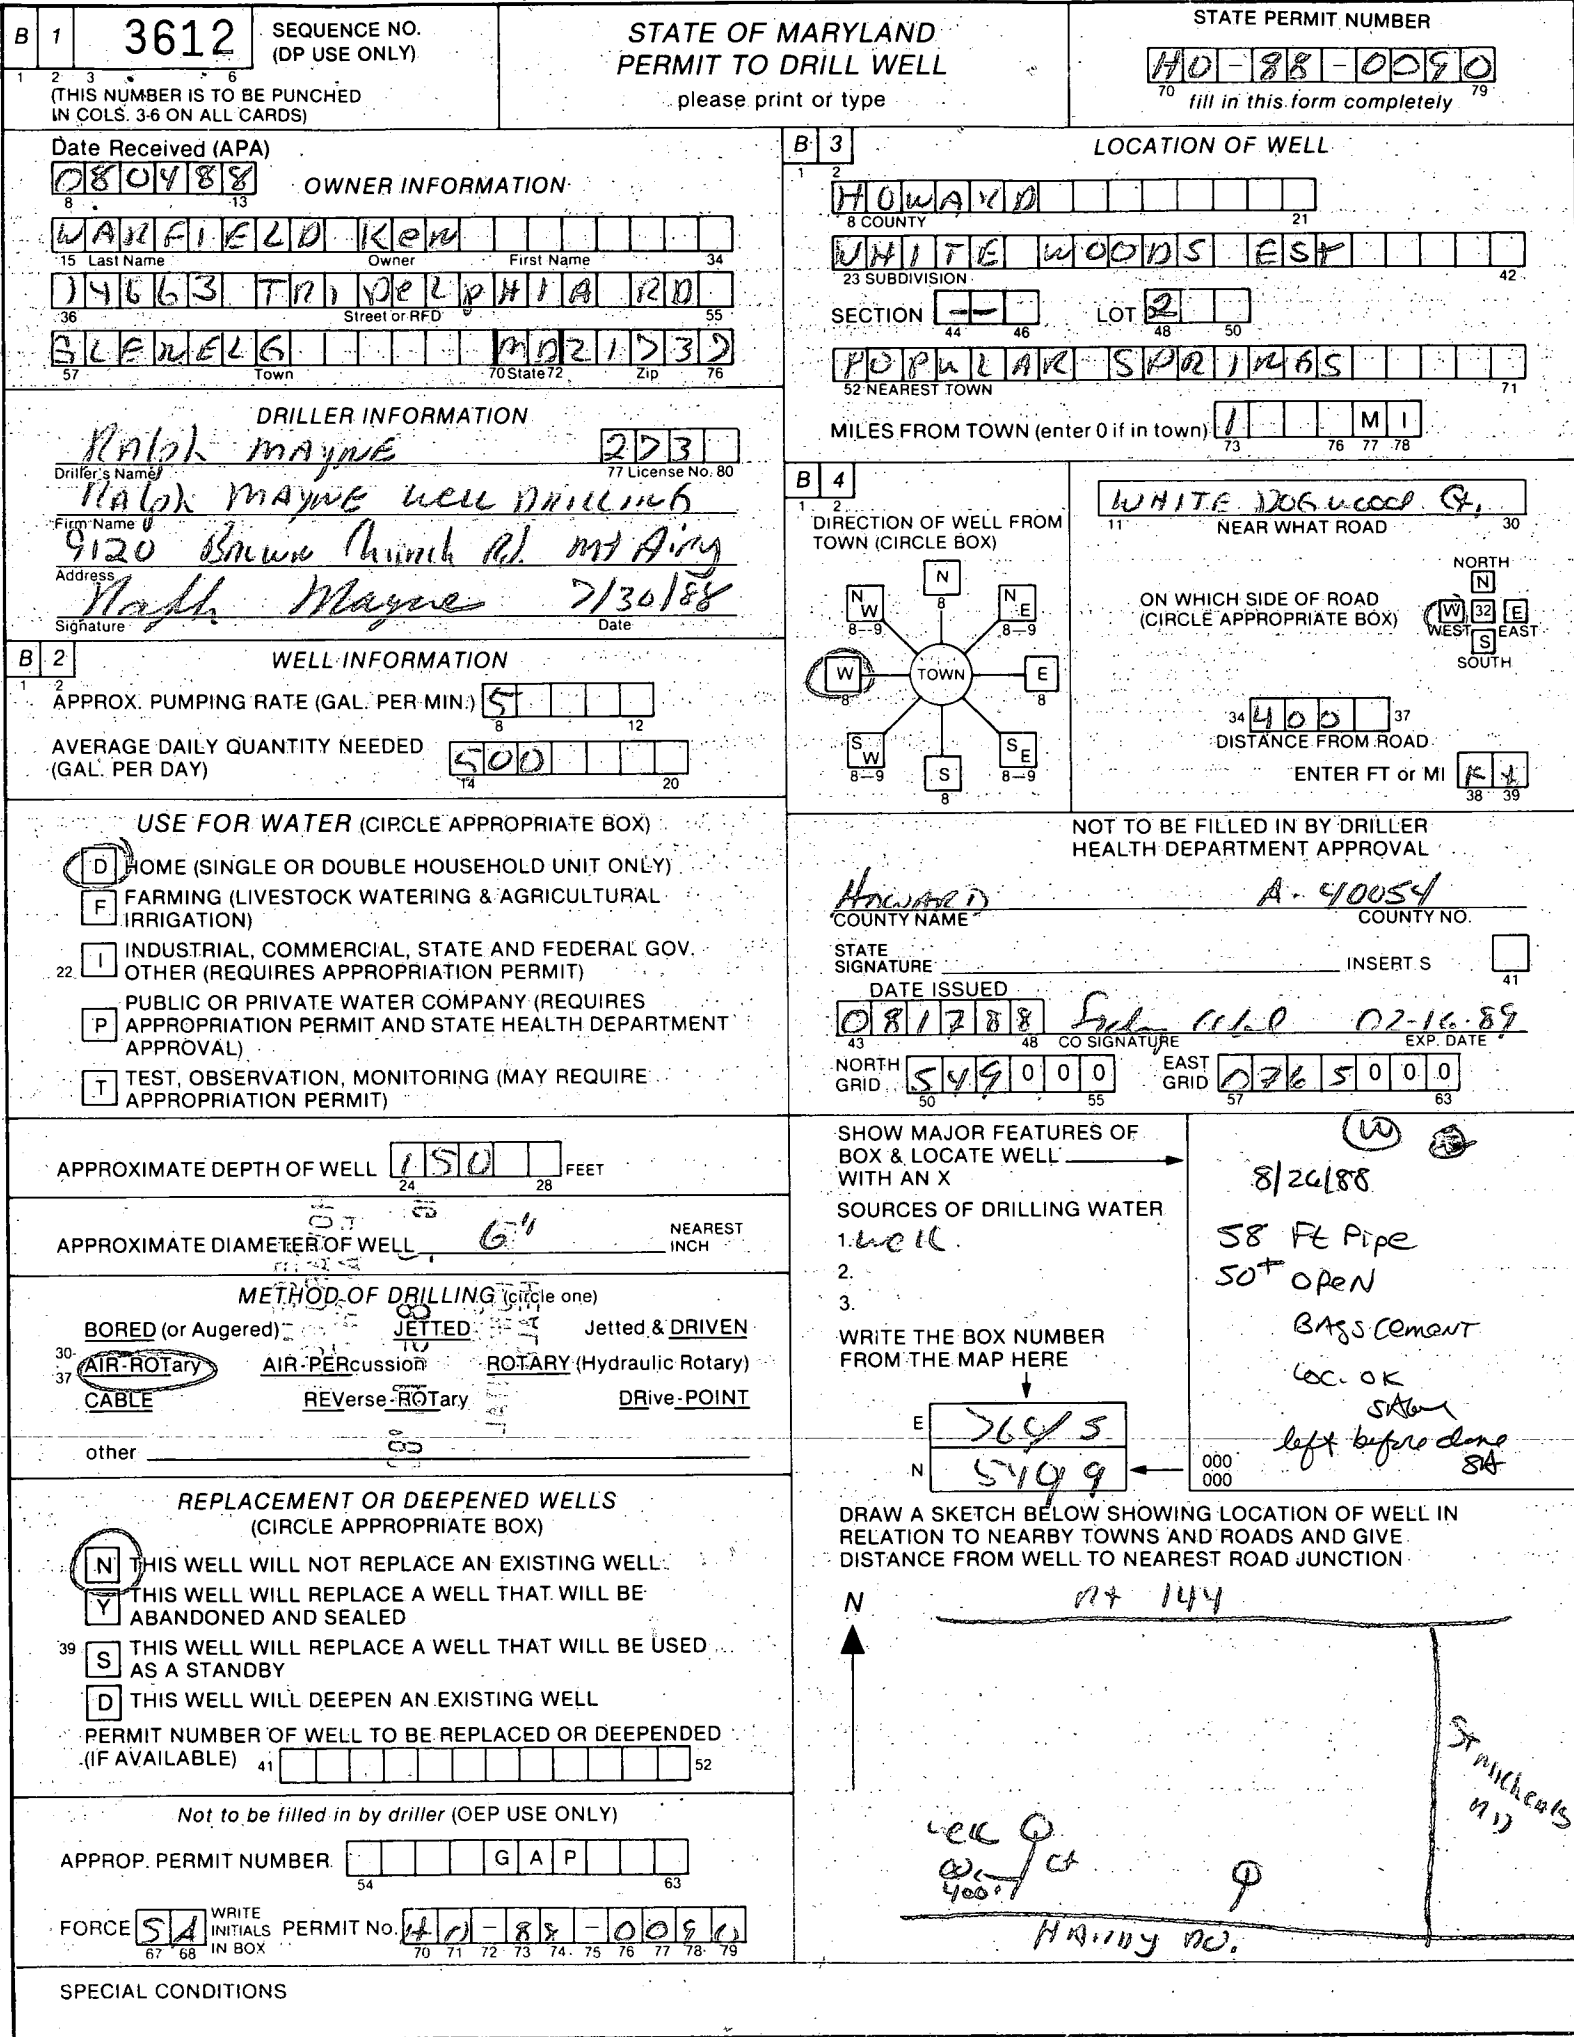 B 1 3612 SEQUENCE NO. (DP USE ONLY)
1 2 3 6
(THIS NUMBER IS TO BE PUNCHED
IN COLS. 3-6 ON ALL CARDS)
STATE OF MARYLAND
PERMIT TO DRILL WELL
please print or type
STATE PERMIT NUMBER
HO-88-0090
70 79
fill in this form completely
Date Received (APA)
080488
8 13
OWNER INFORMATION
WARFIELD Ken
15 Last Name Owner First Name 34
14663 TRIDELPHIA RD
36 Street or RFD 55
GLENELG MD 21737
57 Town 70 State 72 Zip 76
DRILLER INFORMATION
Ralph MAYNE 273
Driller's Name 77 License No. 80
Ralph MAYNE well DRILLING
Firm Name
9120 Brown Church Rd. Mt Airy
Address
Ralph Mayne 7/30/88
Signature Date
B 2 WELL INFORMATION
1 2
APPROX. PUMPING RATE (GAL. PER MIN.) 5
8 12
AVERAGE DAILY QUANTITY NEEDED
(GAL. PER DAY) 500
14 20
USE FOR WATER (CIRCLE APPROPRIATE BOX)
D HOME (SINGLE OR DOUBLE HOUSEHOLD UNIT ONLY)
F FARMING (LIVESTOCK WATERING & AGRICULTURAL
IRRIGATION)
22 I INDUSTRIAL, COMMERCIAL, STATE AND FEDERAL GOV.
OTHER (REQUIRES APPROPRIATION PERMIT)
P PUBLIC OR PRIVATE WATER COMPANY (REQUIRES
APPROPRIATION PERMIT AND STATE HEALTH DEPARTMENT
APPROVAL)
T TEST, OBSERVATION, MONITORING (MAY REQUIRE
APPROPRIATION PERMIT)
APPROXIMATE DEPTH OF WELL 150 FEET
24 28
APPROXIMATE DIAMETER OF WELL 6" NEAREST
INCH
METHOD OF DRILLING (circle one)
BORED (or Augered) JETTED Jetted & DRIVEN
30-
37 AIR-ROTary AIR-PERcussion ROTARY (Hydraulic Rotary)
CABLE REVerse-ROTary DRive-POINT
other
REPLACEMENT OR DEEPENED WELLS
(CIRCLE APPROPRIATE BOX)
N THIS WELL WILL NOT REPLACE AN EXISTING WELL
Y THIS WELL WILL REPLACE A WELL THAT WILL BE
ABANDONED AND SEALED
39 S THIS WELL WILL REPLACE A WELL THAT WILL BE USED
AS A STANDBY
D THIS WELL WILL DEEPEN AN EXISTING WELL
PERMIT NUMBER OF WELL TO BE REPLACED OR DEEPENDED
(IF AVAILABLE) 41 52
Not to be filled in by driller (OEP USE ONLY)
APPROP. PERMIT NUMBER GAP
54 63
FORCE SA WRITE INITIALS IN BOX PERMIT No. HO-88-0090
67 68 70 71 72 73 74 75 76 77 78 79
SPECIAL CONDITIONS
B 3 LOCATION OF WELL
1 2
HOWARD
8 COUNTY 21
WHITE WOODS EST
23 SUBDIVISION 42
SECTION -- LOT 2
44 46 48 50
POPULAR SPRINGS
52 NEAREST TOWN 71
MILES FROM TOWN (enter 0 if in town) 1 MI
73 76 77 78
B 4
1 2
DIRECTION OF WELL FROM
TOWN (CIRCLE BOX)
N 8
NW 8-9
NE 8-9
W 8
TOWN
E 8
SW 8-9
S 8
SE 8-9
WHITE DOGwood Ct.
11 NEAR WHAT ROAD 30
ON WHICH SIDE OF ROAD
(CIRCLE APPROPRIATE BOX)
NORTH
N
W 32 E
WEST EAST
S
SOUTH
34 400 37
DISTANCE FROM ROAD
ENTER FT or MI Ft
38 39
NOT TO BE FILLED IN BY DRILLER
HEALTH DEPARTMENT APPROVAL
HOWARD A-40054
COUNTY NAME COUNTY NO.
STATE
SIGNATURE INSERT S
41
DATE ISSUED
081788 02-16-89
43 48 CO SIGNATURE EXP. DATE
NORTH GRID 549000 EAST GRID 0765000
50 55 57 63
SHOW MAJOR FEATURES OF
BOX & LOCATE WELL
WITH AN X
SOURCES OF DRILLING WATER
1. well
2.
3.
WRITE THE BOX NUMBER
FROM THE MAP HERE
E 7645
N 5499
000
000
W
8/26/88
58 Ft Pipe
50+ OPEN
BAGS CEMENT
LOC. OK
left before done
SA
DRAW A SKETCH BELOW SHOWING LOCATION OF WELL IN
RELATION TO NEARBY TOWNS AND ROADS AND GIVE
DISTANCE FROM WELL TO NEAREST ROAD JUNCTION
N
Rt 144
St Michaels RD
well
400'
Ct
HARDY RD.